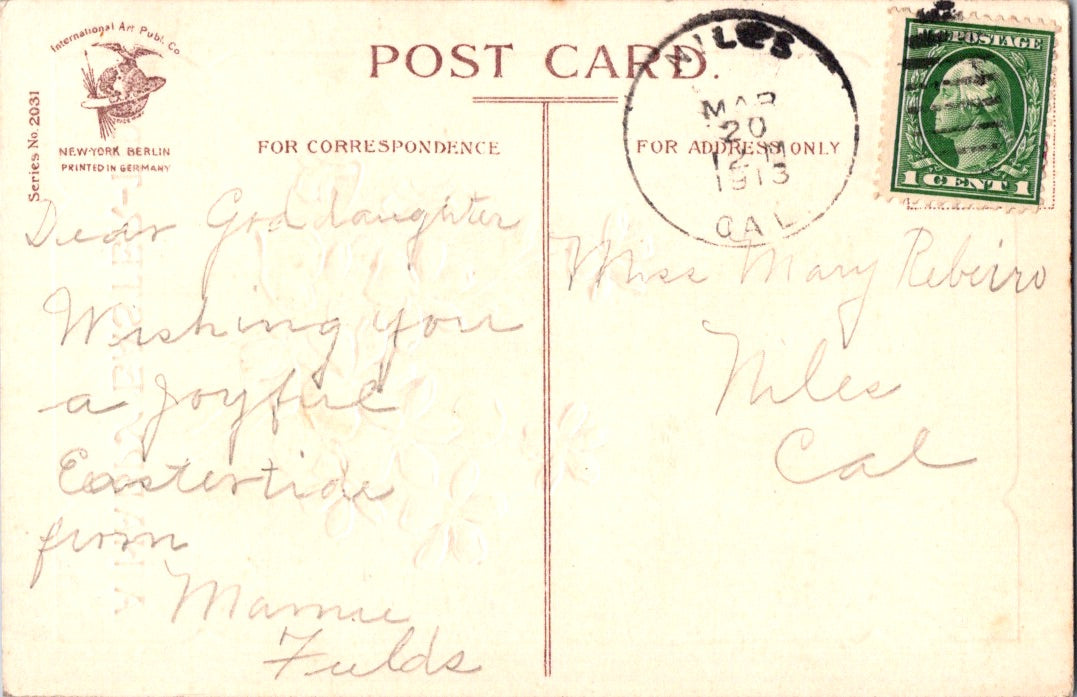 International Art Publ. Co.
Series No. 2031
NEW-YORK BERLIN
PRINTED IN GERMANY
POST CARD.
FOR CORRESPONDENCE
FOR ADDRESS ONLY
NILES
MAR
20
12 M
1913
CAL.
U.S. POSTAGE
1 CENT 1
Dear Goddaughter
Wishing you
a Joyful
Eastertide
from
Mamie
Fields
Miss Mary Rebeiro
Niles
Cal